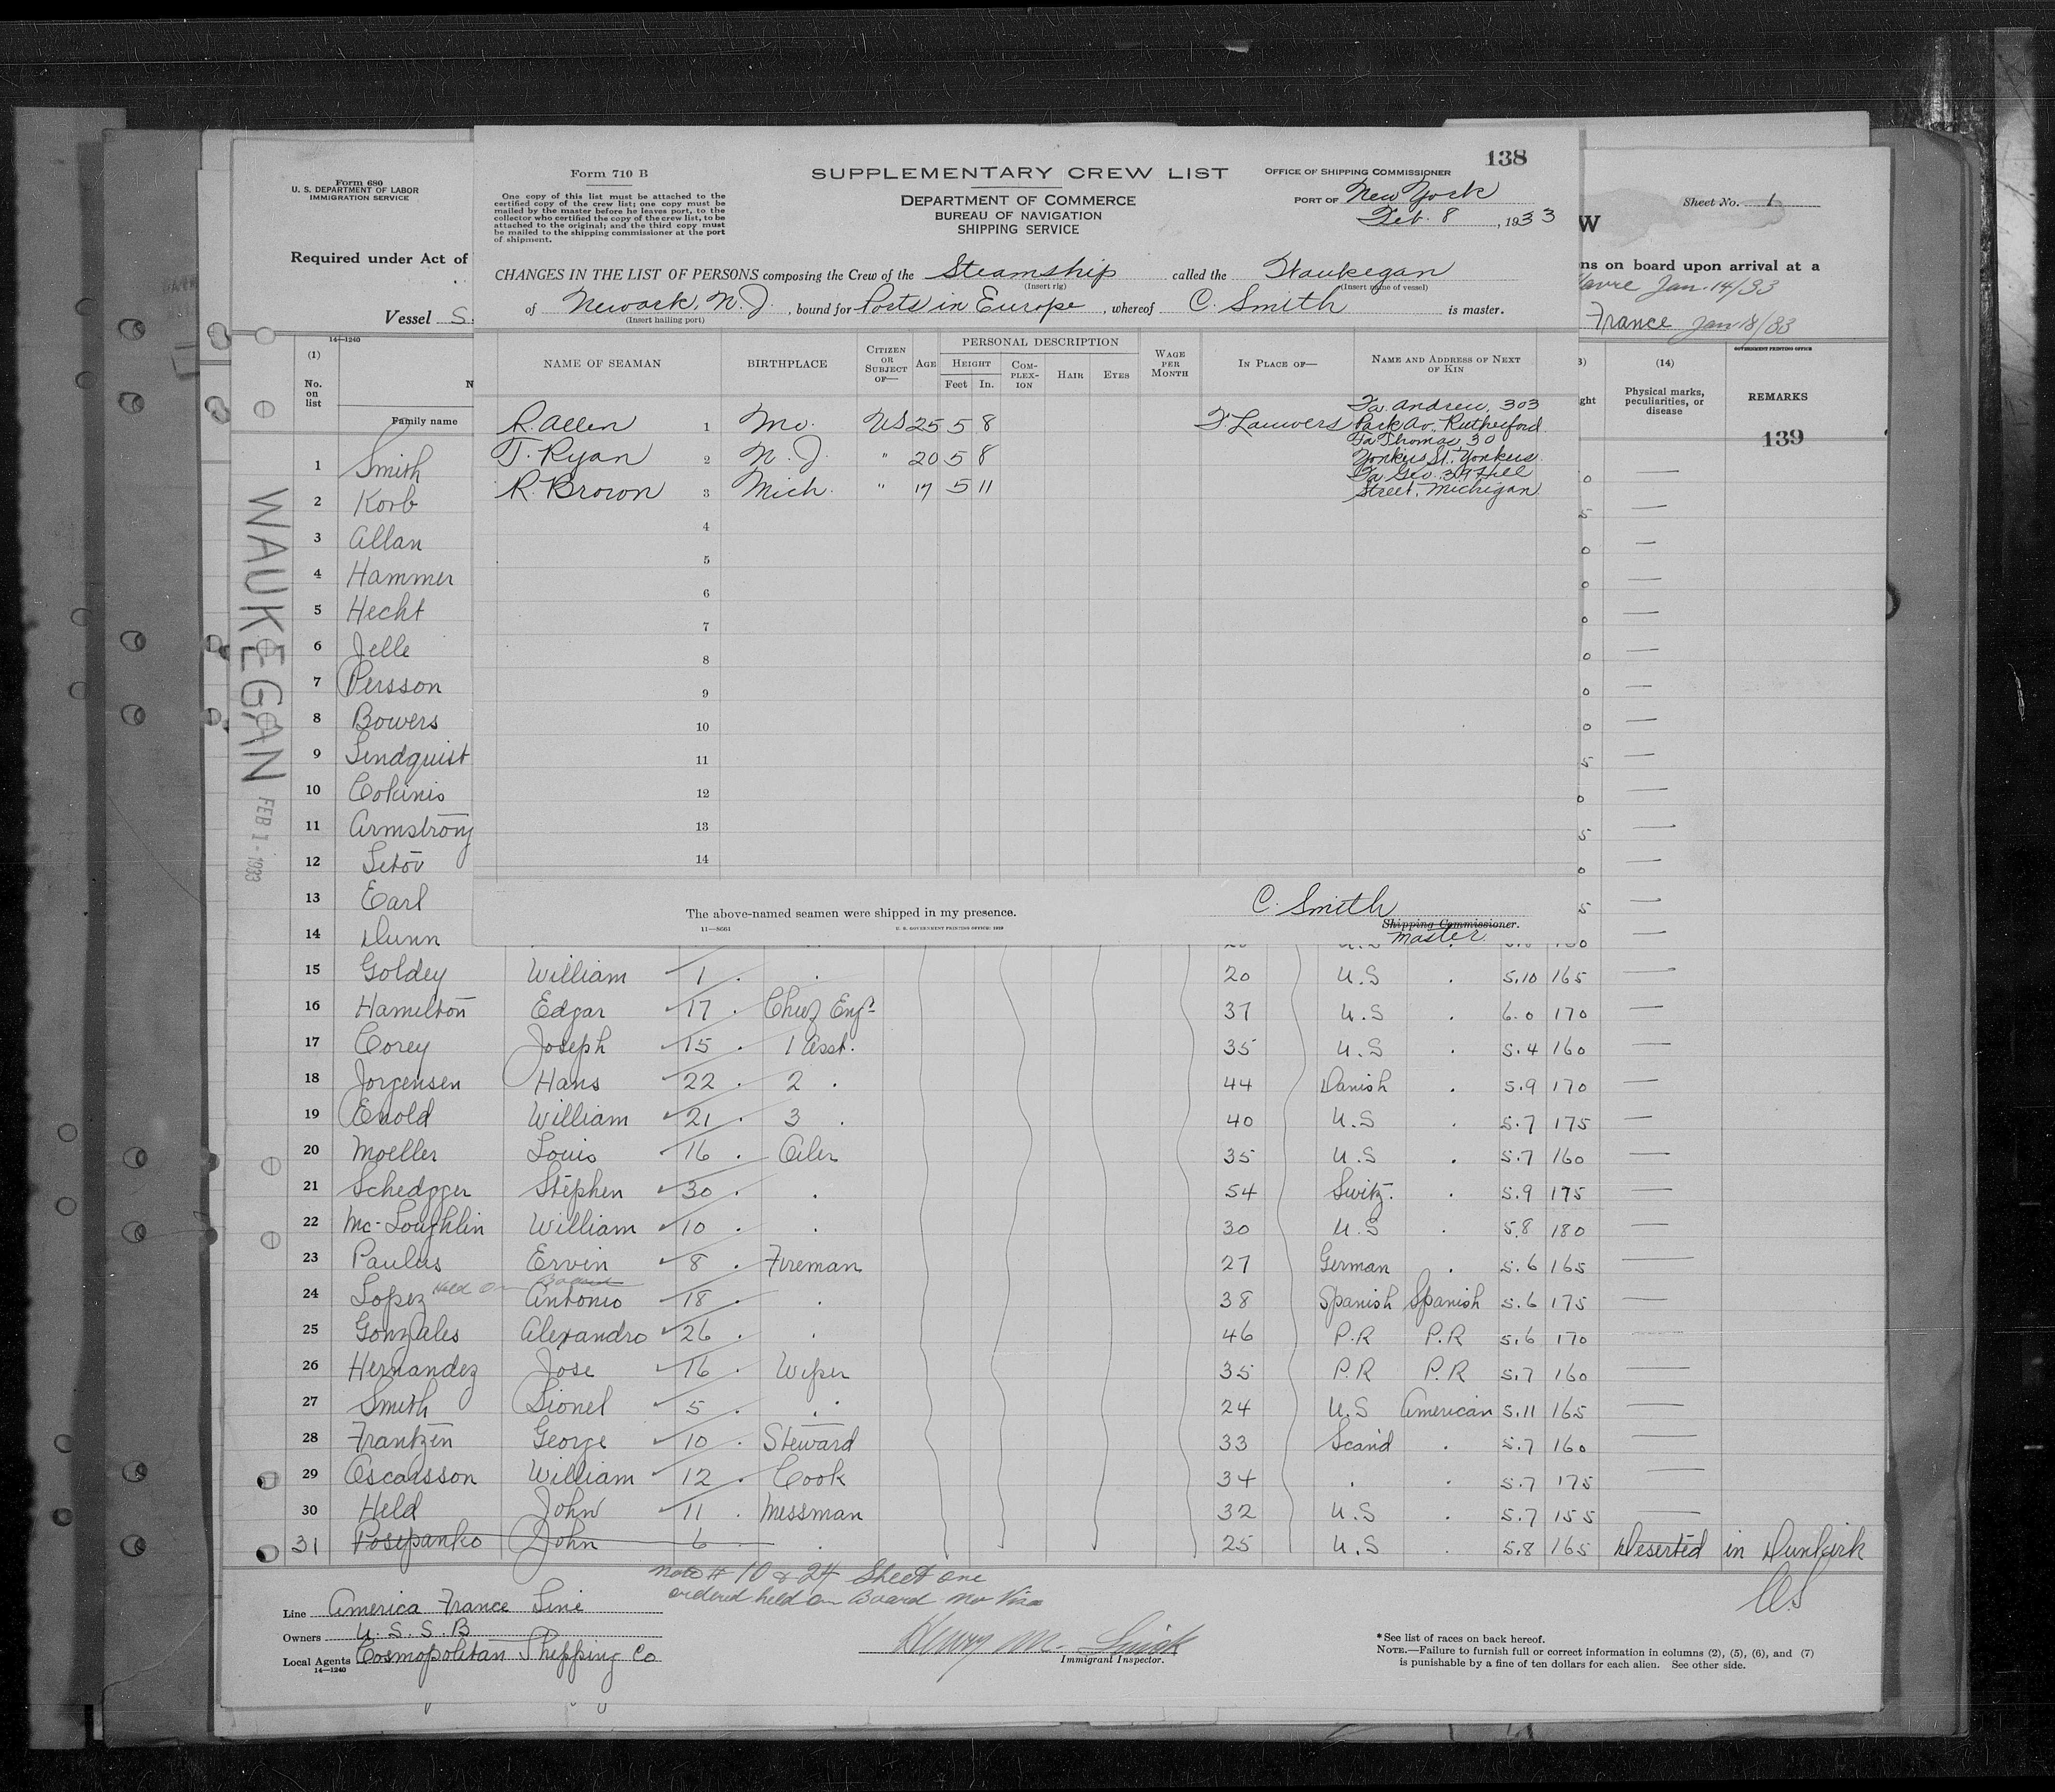 138
Form 710 B
One copy of this list must be attached to the
certified copy of the crew list; one copy must be
mailed by the master before he leaves port, to the
collector who certified the copy of the crew list, to be
attached to the original; and the third copy must
be mailed to the shipping commissioner at the port
of shipment.
SUPPLEMENTARY CREW LIST
DEPARTMENT OF COMMERCE
BUREAU OF NAVIGATION
SHIPPING SERVICE
OFFICE OF SHIPPING COMMISSIONER
PORT OF New York
Feb. 8, 1933
CHANGES IN THE LIST OF PERSONS composing the Crew of the Steamship called the Waukegan
(Insert rig) (Insert name of vessel)
of Newark, N.J., bound for Ports in Europe, whereof C. Smith is master.
(Insert hailing port)
NAME OF SEAMAN BIRTHPLACE CITIZEN OR SUBJECT OF— AGE PERSONAL DESCRIPTION HEIGHT Feet In. COM-PLEX-ION HAIR EYES WAGE PER MONTH IN PLACE OF— NAME AND ADDRESS OF NEXT OF KIN
R. Allen 1 Mo. US 25 5 8 F. Lauwers Fa. Andrew, 303 Park Av., Rutherford
T. Ryan 2 N.J. " 20 5 8 Fa Thomas, 30 Yonkers St. Yonkers
R. Brown 3 Mich. " 17 5 11 Fa Geo. 397 Hill Street, Michigan
4
5
6
7
8
9
10
11
12
13
14
The above-named seamen were shipped in my presence.
C. Smith
Shipping Commissioner.
Master
11—8661 U. S. GOVERNMENT PRINTING OFFICE: 1929
Form 680
U. S. DEPARTMENT OF LABOR
IMMIGRATION SERVICE
Required under Act of
Vessel S.
14—1240
W
Sheet No. 1
ns on board upon arrival at a
Havre Jan. 14/33
France Jan 18/33
GOVERNMENT PRINTING OFFICE
(1) No. on list
Family name
(14) Physical marks, peculiarities, or disease
REMARKS
139
WAUKEGAN
FEB 1 - 1933
1 Smith
2 Korb
3 Allan
4 Hammer
5 Hecht
6 Jelle
7 Persson
8 Bowers
9 Lindquist
10 Cokinis
11 Armstrong
12 Setov
13 Earl
14 Dunn
15 Goldey William 1 . 20 U.S . 5.10 165 —
16 Hamilton Edgar 17 . Chief Engr 37 U.S . 6.0 170 —
17 Corey Joseph 15 . 1 Asst. 35 U.S . 5.4 160 —
18 Jorgensen Hans 22 . 2 . 44 Danish . 5.9 170 —
19 Enold William 21 . 3 . 40 U.S . 5.7 175 —
20 Moeller Louis 16 . Oiler 35 U.S . 5.7 160 —
21 Schedgger Stephen 30 . . 54 Switz. . 5.9 175 —
22 Mc-Loughlin William 10 . . 30 U.S . 5.8 180 —
23 Paulus Ervin 8 . Fireman 27 German . 5.6 165 —
Held On Board
24 Lopez Antonio 18 . . 38 Spanish Spanish 5.6 175 —
25 Gonzales Alexandro 26 . . 46 P.R P.R 5.6 170 —
26 Hernandez Jose 16 . Wiper 35 P.R P.R 5.7 160 —
27 Smith Lionel 5 . . 24 U.S American 5.11 165 —
28 Frantzen George 10 . Steward 33 Scand . 5.7 160 —
29 Oscarsson William 12 . Cook 34 . . 5.7 175 —
30 Held John 11 . Messman 32 U.S . 5.7 155 —
31 Posepanko John 6 . 25 U.S . 5.8 165 Deserted in Dunkirk
CS
Note # 10 & 24 Sheet one
ordered held on Board no Visa
Line America France Line
Owners U.S.S.B
Local Agents Cosmopolitan Shipping Co
14—1240
Henry M.
Immigrant Inspector.
*See list of races on back hereof.
NOTE.—Failure to furnish full or correct information in columns (2), (5), (6), and (7)
is punishable by a fine of ten dollars for each alien. See other side.